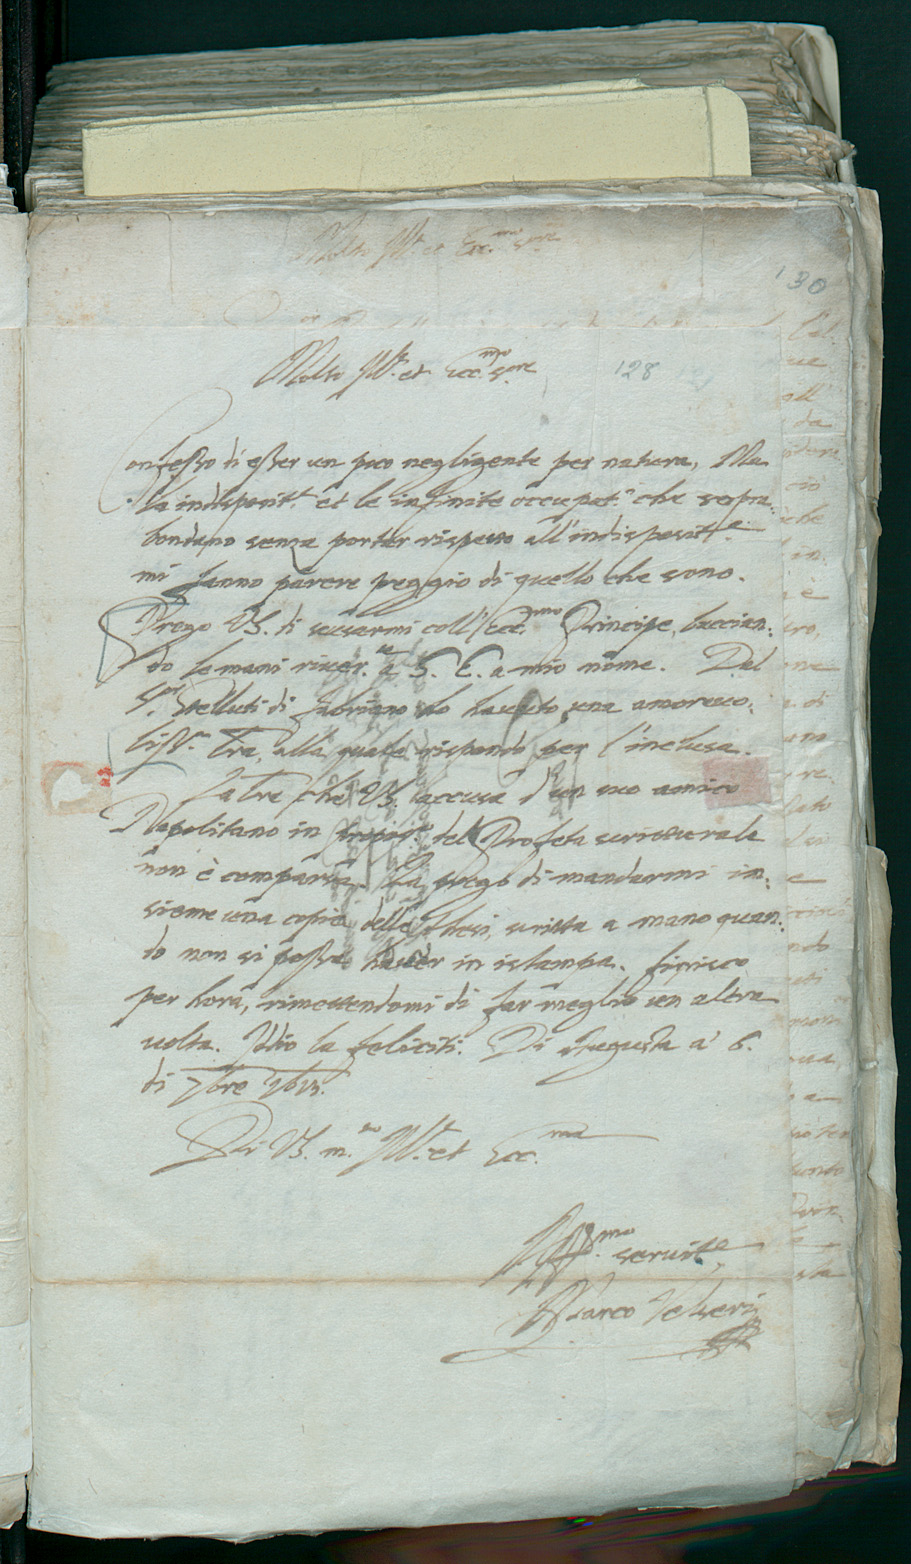 130
Molto Ill.re et Ecc.mo S.ore
128
Confesso di esser un poco negligente per natura, Ma
la indisposit.e et le infinite occupat.i che sopra:
bondano senza portar rispetto all'indisposit.e
mi fanno parere peggio di quello che sono.
Prego VS. di scusarmi coll'Ecc.mo Principe, baccian:
do le mani river.te a S. E. a mio nome. Del
S.or Stelluti di Fabriano ho havuto una amorevo:
liss.a lra, alla quale rispondo per l'inclusa.
La lre che VS. accusa d'un suo amico
Napolitano in del Profeta scritturale
non è comparsa. La prego di mandarmi in:
sieme una copia delle Thesi, scritta a mano quan:
do non si possa haver in istampa. finisco
per hora, rimettendomi di far meglio un altra
volta. Iddio la feliciti. Di Augusta a' 6.
di 7bre 1613.
Di VS. m.to Ill.re et Ecc.ma
Aff.mo servit.e
Marco Velseri